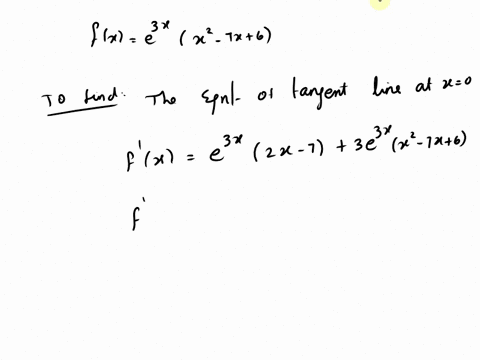 f(x) = e^{3x} (x² - 7x + 6)
To find: The Eqnt. of tangent line at x=0
f'(x) = e^{3x} (2x - 7) + 3e^{3x} (x² - 7x + 6)
f'